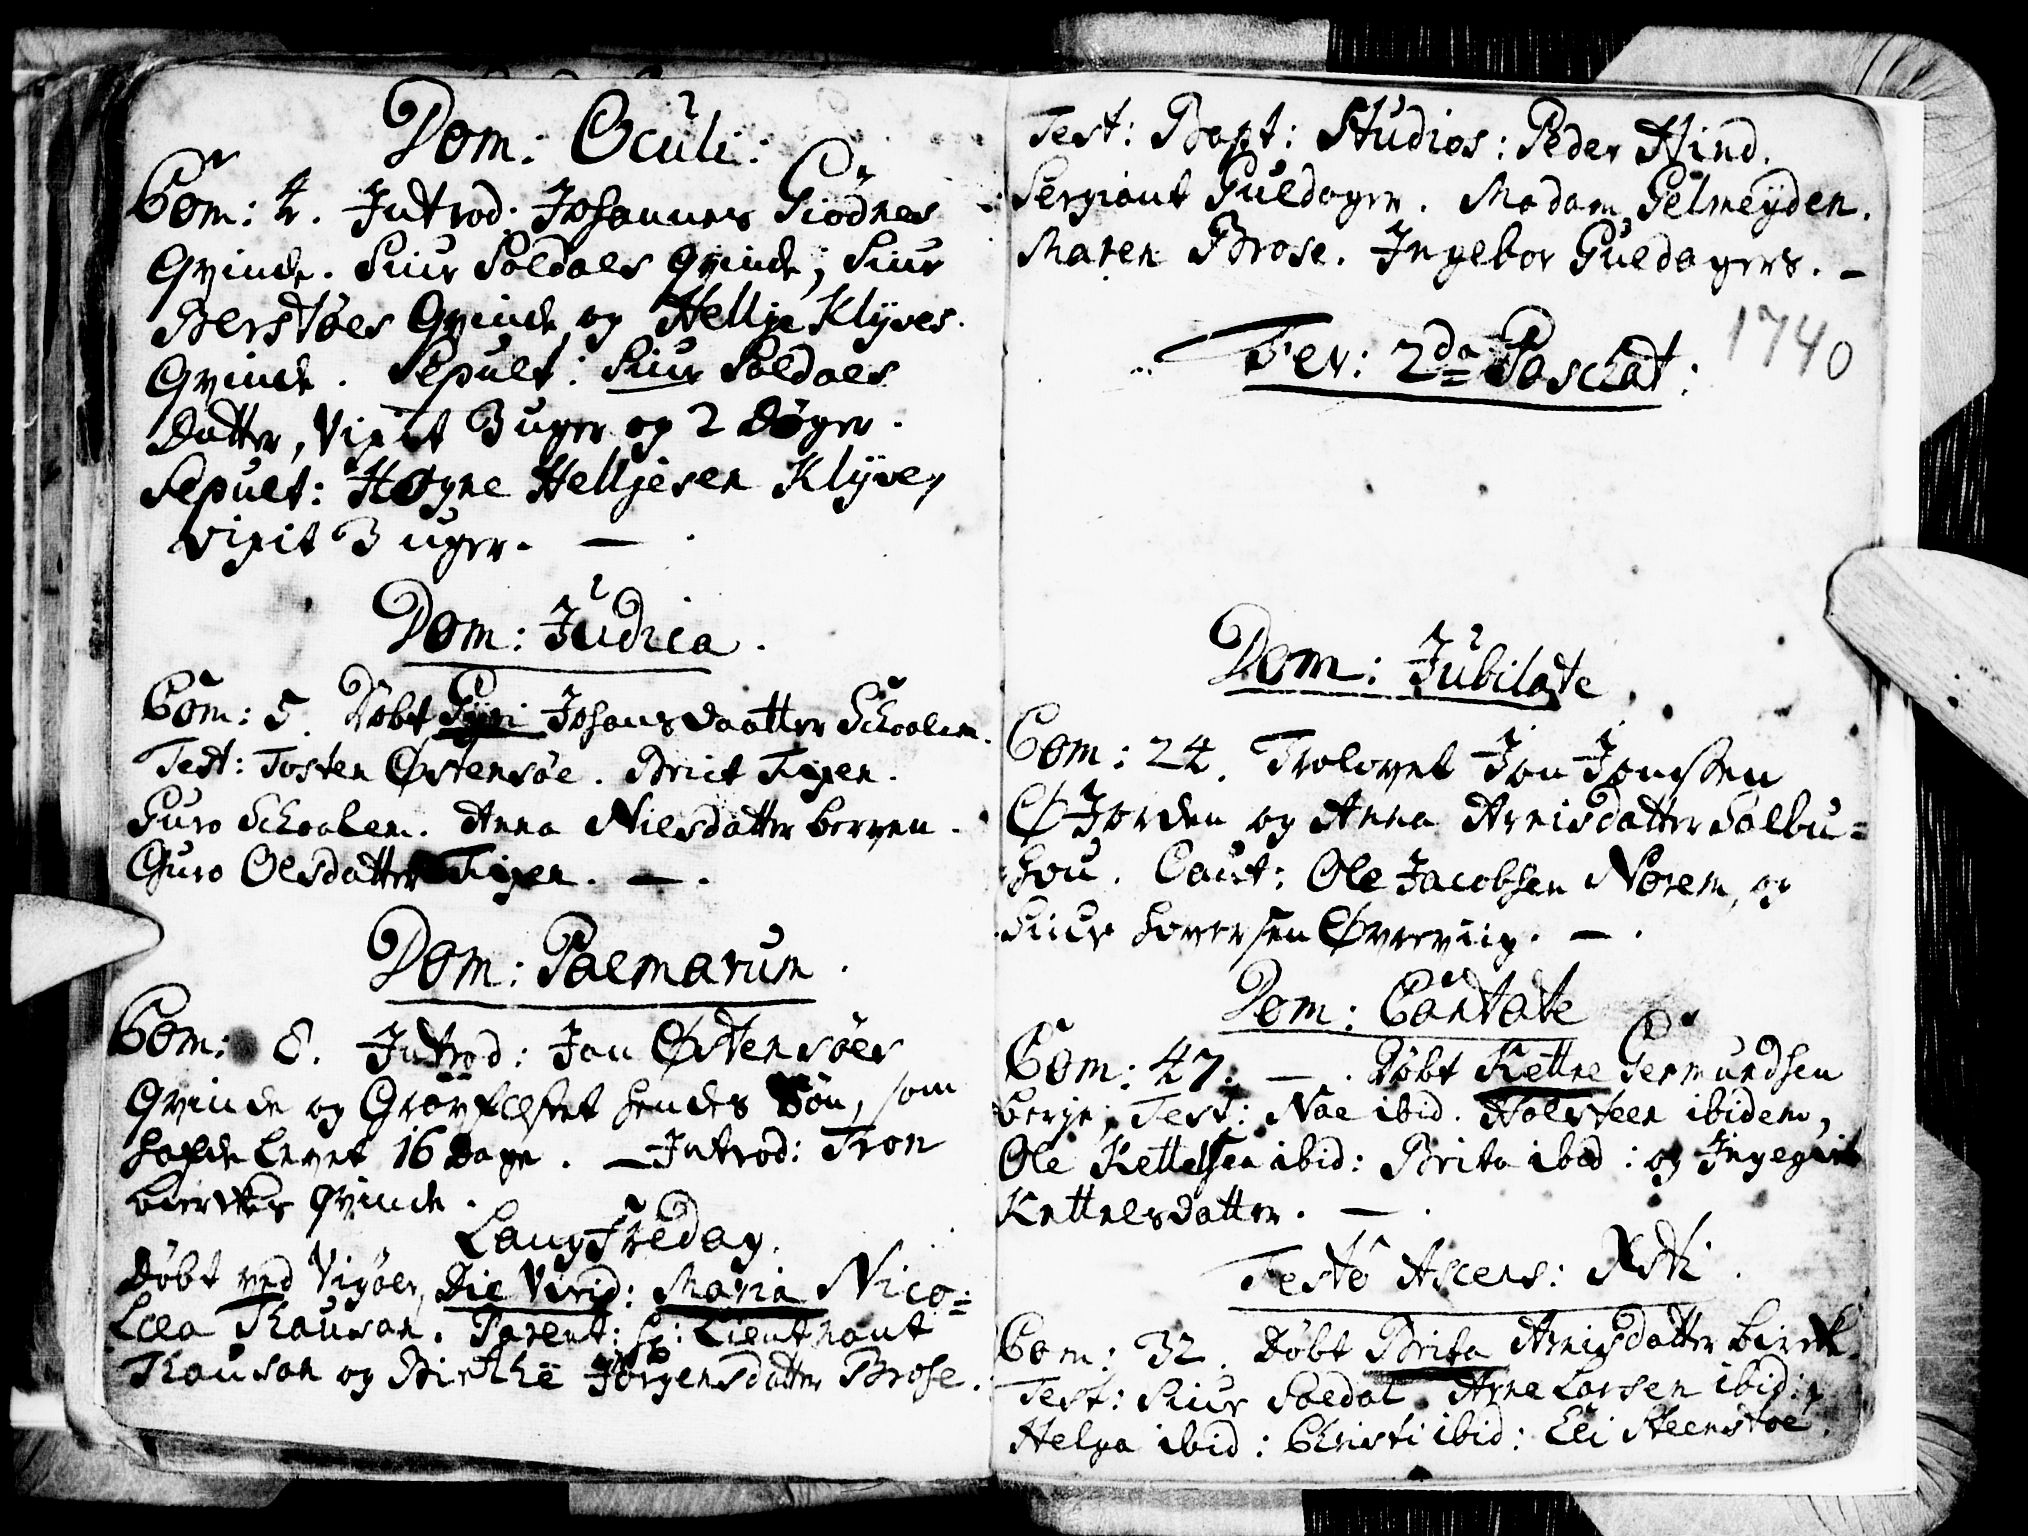 Dom: Oculi:
Com: 4. Introd: Johannes Giödnes
Qvinde. Siur Soldals Qvinde, Siur
Berstöes Qvinde og Hellje Klÿves
Qvinde. Sepult: Siur Soldals
Datter, vixit 3 uger og 2 Døger.
Sepult: Hogne Helljesen Klÿve,
vixit 3 uger. —
Dom: Judica.
Com: 5. Døbt Sÿni Johansdaatter Schoalem.
Test: Tosten Østensøe. Brit
Guro Schoalem. Anna Nielsdatter Berven.
Guro Olsdatter —.
Dom: Palmarum.
Com: 8. Introd: Jon Østensøes
Qvinde og Gravfæstet hendes Søn, som
hafde levet 16 Dage. — Introd: Tron
Birkes Qvinde.
Langfredag.
Døbt ved Vigøer, Die Virid: Maria Nico=
læa Thauson. Parent: Hr: Lieutnant
Thauson og Birthe Jörgensdatter Brose.
Test: Bapt: Studios: Peder Hind.
Sergiant Guldager. Madam Gelmeÿden.
Maren Brose. Ingebor Guldagers. —
1740
Fer: 2da Paschat:
Dom: Jubilate.
Com: 24. Trolovet Jon Jonssen
Ø Jorden og Anna Arnisdatter Solbu=
hou. Caut: Ole Jacobsen Norem, og
Siur Soversen Øvrevig. —.
Dom: Cantate
Com: 47. —. Døbt Kettne Germundsen
Berje, Test: Noe ibid. Holsteen ibidem,
Ole Kettelsen ibid: Brita ibid: og Ingegierd
Kettnelsdatter. —.
Festo Ascens: Xsti.
Com: 32. Døbt Brita Arnisdatter Birk.
Test: Siur Soldal. Arne Larsen ibid:
Helga ibid: Christi ibid: Eli Steenstøe.